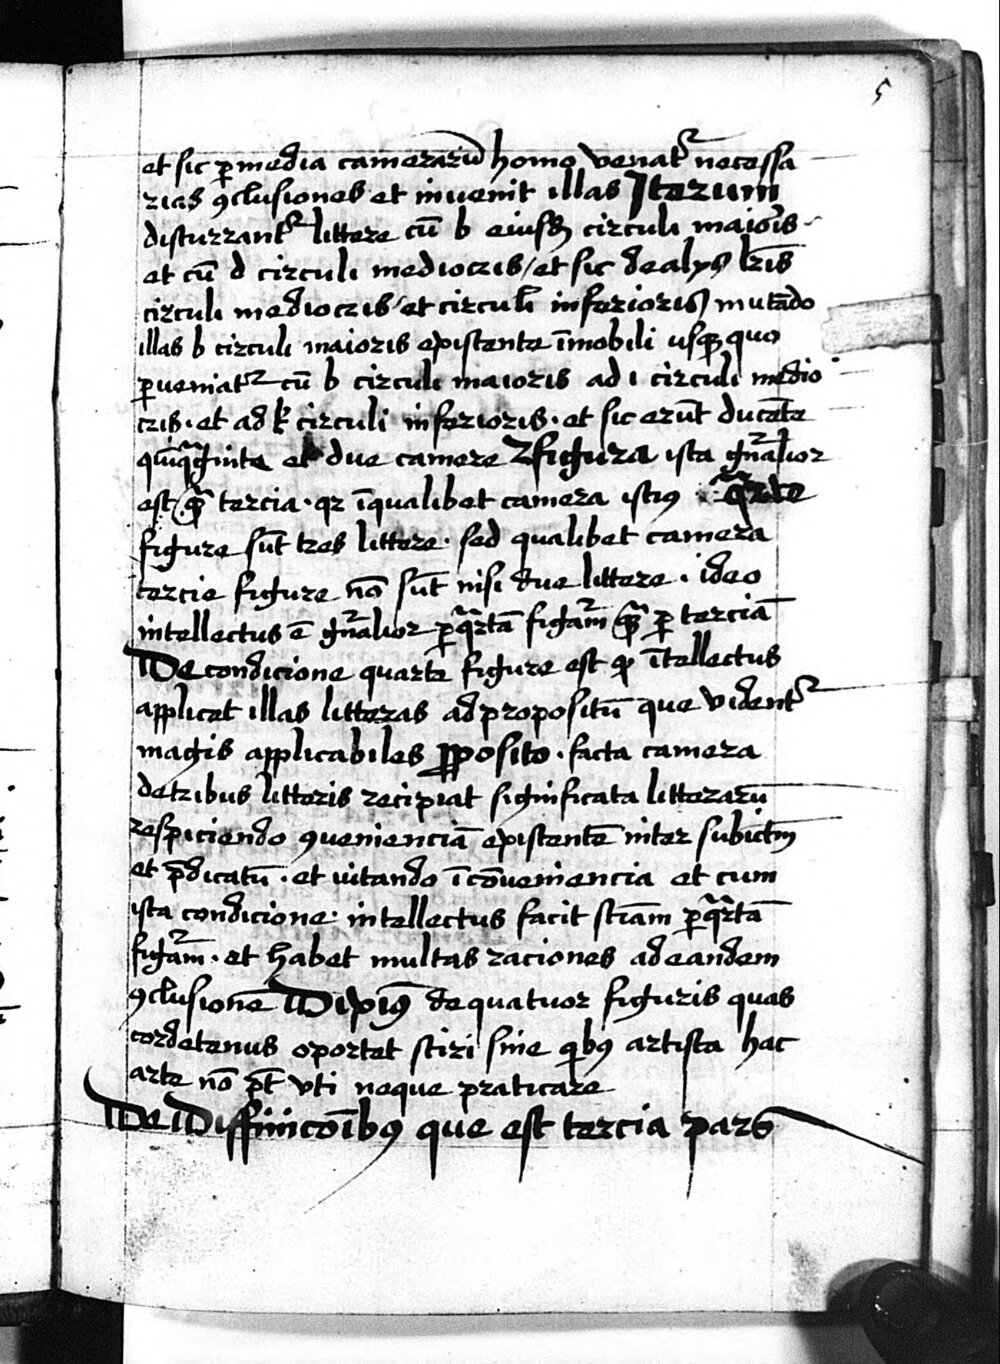 5
et sic p̲ media camerarū homo venat᷑ necessa
rias ꝯclusiones et inuenit illas Iterum
discurrant᷑ littere cū b eiusdē circuli maioris
et cū d circuli mediocris / et sic de alys lr̄is
circuli mediocris / et circuli inferioris mutādo
illas b circuli maioris existente īmobili usqꝫ quo
ꝑueniat᷑ cū b circuli maioris ad i circuli medio
cris · et ad k circuli inferioris · et sic erūt ducēte
quīqᵃginta et due camere ⁊ figura ista gn̄alior
est qᵃ̄ tercia · qr īqualibet camera istiꝯ qᵃrte
figure sūt tres littere · sed qualibet camera
tercie figure nō sūt nisi due littere · ideo
intellectus ē gn̄alior ꝑ qᵃrtā figᵃm qᵃ̄ ꝑ terciā
De condicione quarte figure est ꝙ ītellectus
applicet illas litteras ad propositū que vident᷑
magis applicabiles ꝓposito · facta camera
de tribus litteris recipiat significata litterarū
respiciendo ꝯuenienciā existentē inter subictm̄
et p̄dicatū · et uitando īcōueniencia et cum
ista condicione · intellectus facit sciām ꝑ qᵃrtā
figᵃm · et habet multas raciones ad eandem
ꝯclusionē Diximꝯ de quatuor figuris quas
cordetenus oportet sciri sine qibꝯ artista hac
arte nō pt̄ vti neque praticare
De Diffinicōibꝯ que est tercia pars